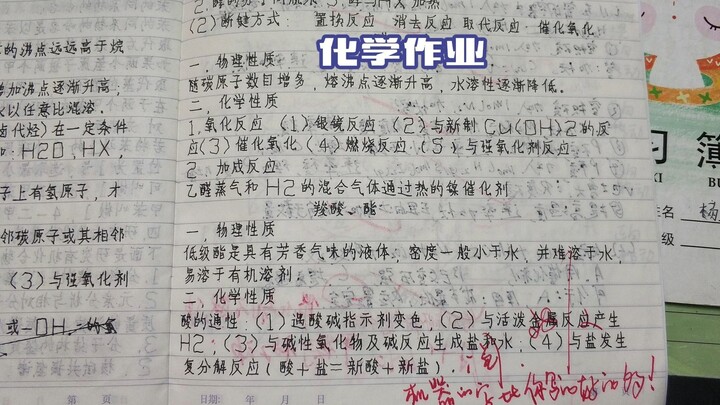 (2)断键方式: 置换反应 消去反应 取代反应 催化氧化
化学作业
的沸点远远高于烷
一、物理性质
随碳原子数目增多, 熔沸点逐渐升高 水溶性逐渐降低.
增加沸点逐渐升高;
以任意比混溶.
二、化学性质
卤代烃)在一定条件
1.氧化反应 (1)银镜反应 (2)与新制Cu(OH)2的反
: H2O, HX,
应(3)催化氧化(4)燃烧反应(5)与强氧化剂反应
2. 加成反应
子上有氢原子, 才
乙醛蒸气和H2的混合气体通过热的镍催化剂
羧酸、酯
邻碳原子或其相邻
一、物理性质
低级酯是具有芳香气味的液体, 密度一般小于水, 并难溶于水,
(3)与强氧化剂
易溶于有机溶剂.
二、化学性质
或-OH
酸的通性:(1)遇酸碱指示剂变色,(2)与活泼金属反应产生
H2;(3)与碱性氧化物及碱反应生成盐和水;(4)与盐发生
复分解反应(酸+盐=新酸+新盐).
机器的
你写的
的多!
第 页
日期: 年 月 日
习 簿
XI
姓名
级